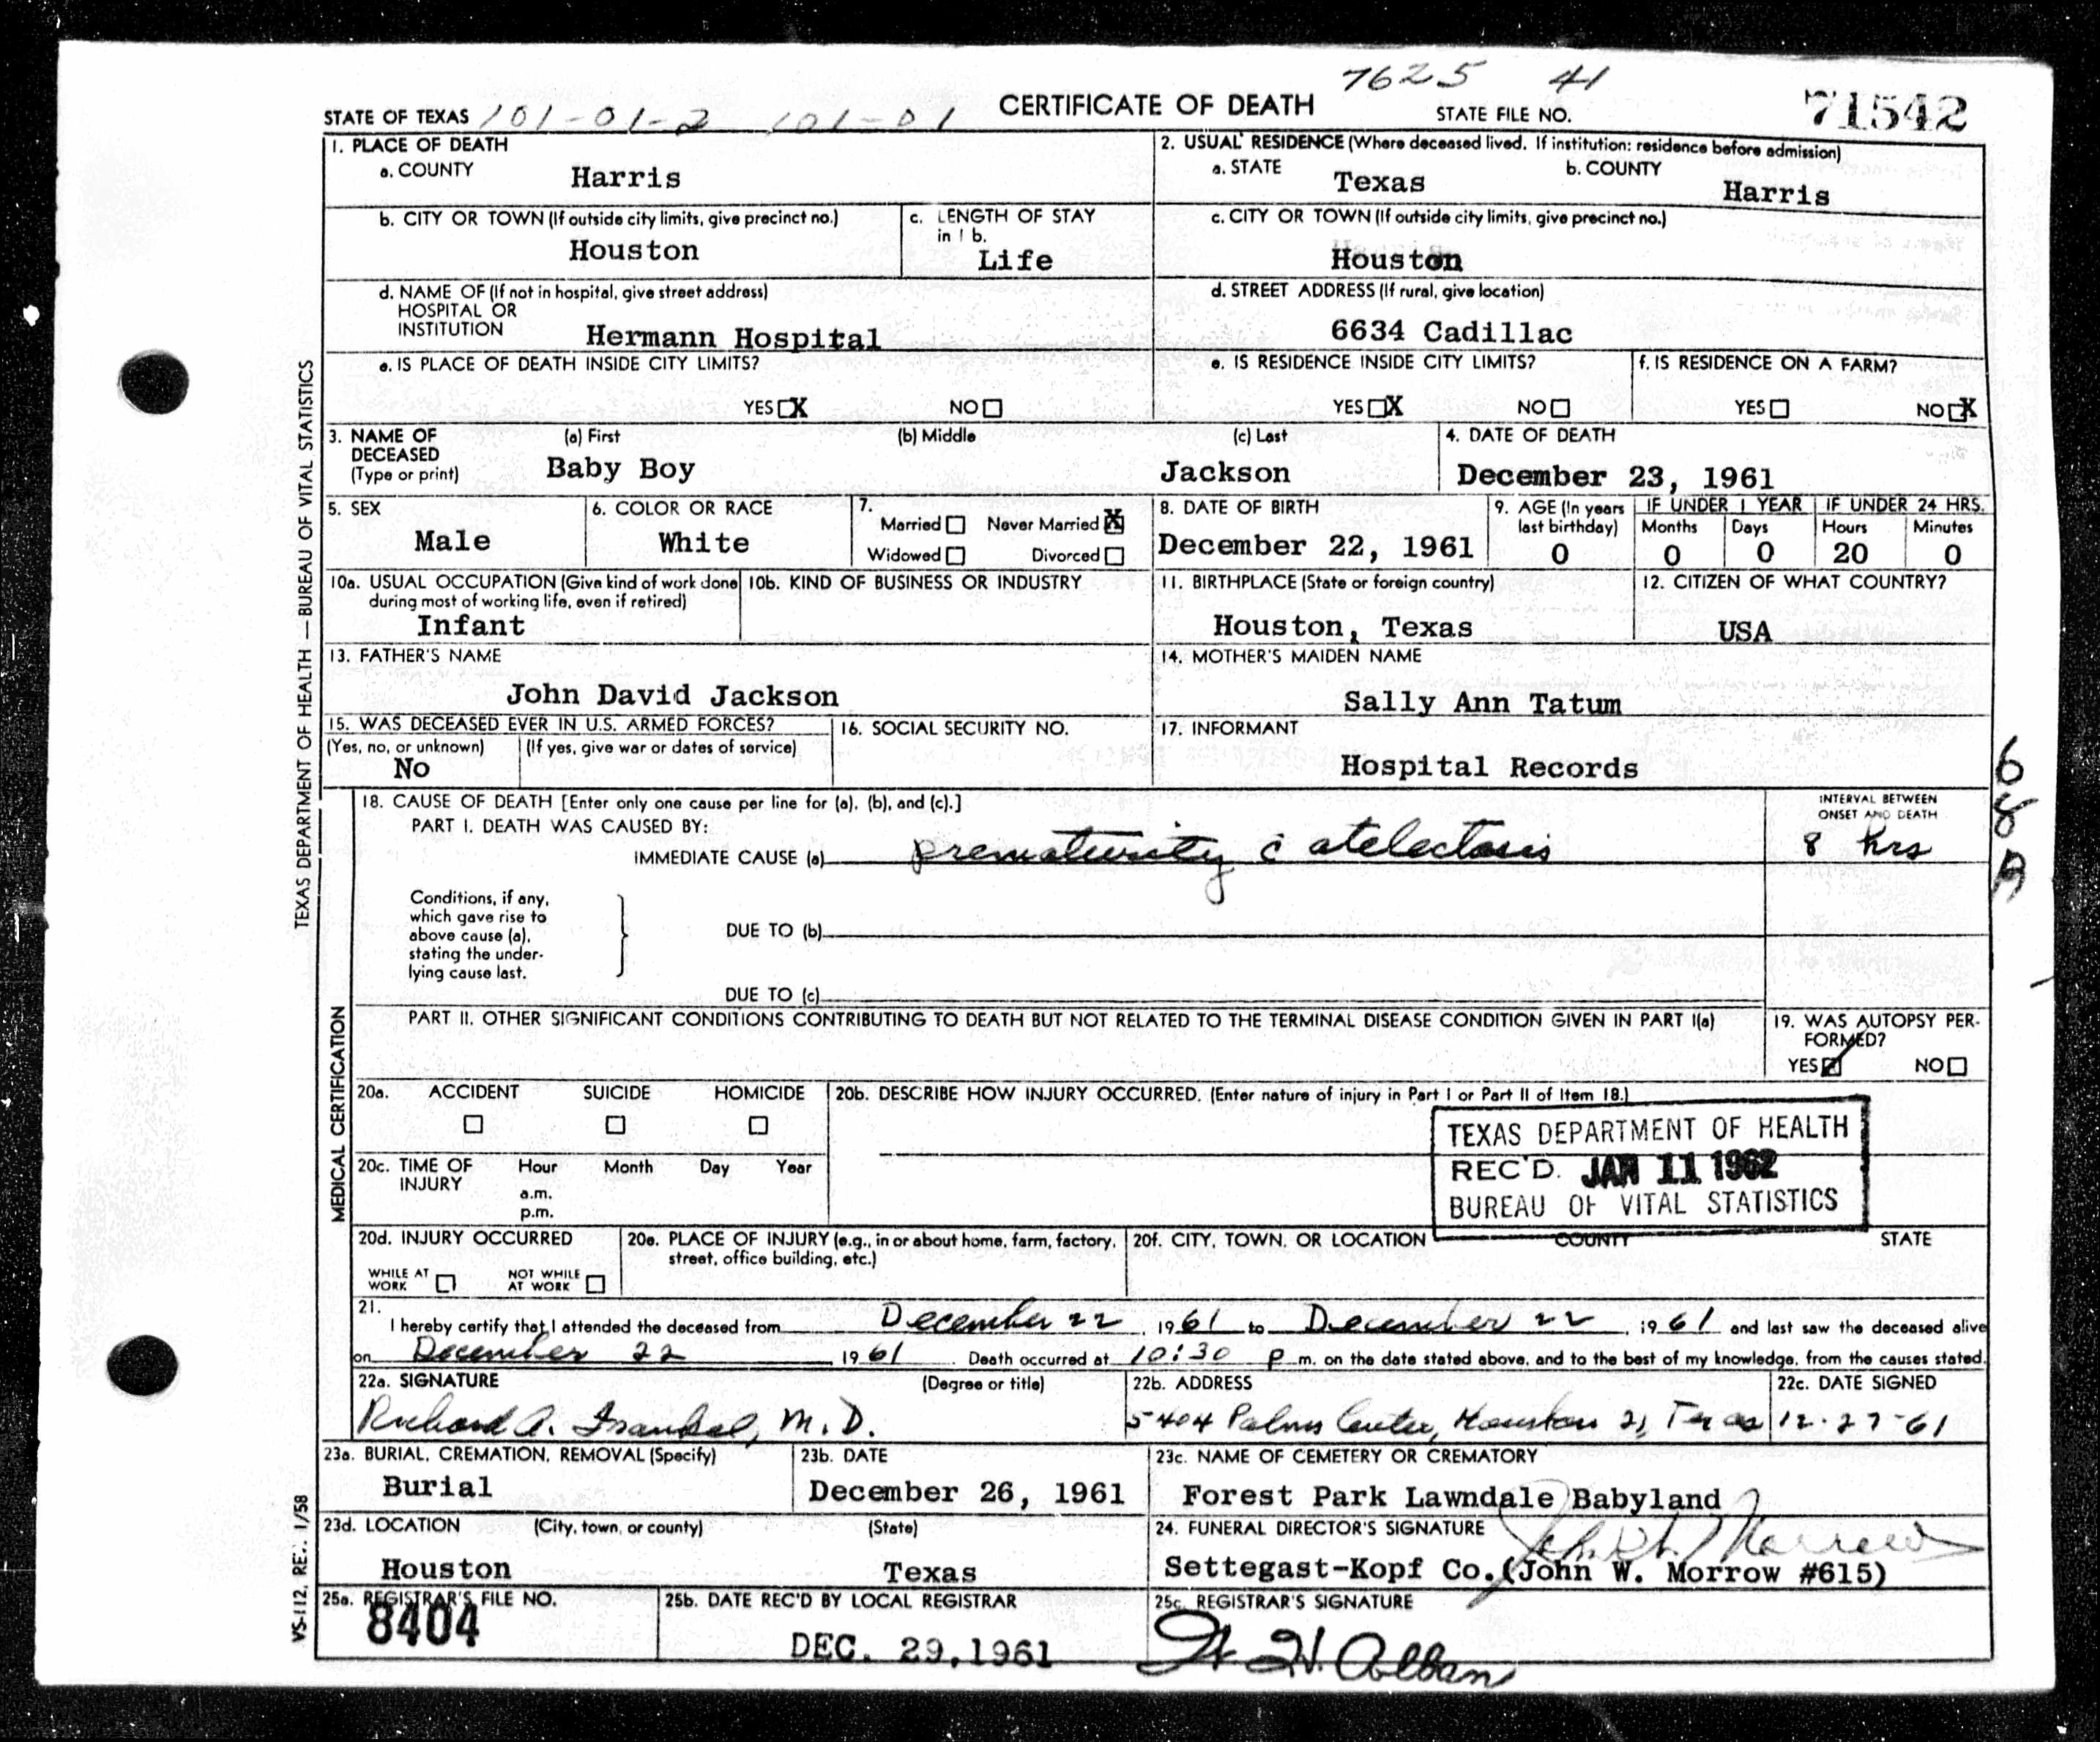 7625 41
STATE OF TEXAS 101-01-2 101-01 CERTIFICATE OF DEATH STATE FILE NO. 71542
1. PLACE OF DEATH
a. COUNTY Harris
2. USUAL RESIDENCE (Where deceased lived. If institution: residence before admission)
a. STATE Texas b. COUNTY Harris
b. CITY OR TOWN (If outside city limits, give precinct no.) Houston
c. LENGTH OF STAY in 1 b. Life
c. CITY OR TOWN (If outside city limits, give precinct no.) Houston
d. NAME OF (If not in hospital, give street address)
HOSPITAL OR
INSTITUTION Hermann Hospital
d. STREET ADDRESS (If rural, give location)
6634 Cadillac
e. IS PLACE OF DEATH INSIDE CITY LIMITS?
YES X NO
e. IS RESIDENCE INSIDE CITY LIMITS?
YES X NO
f. IS RESIDENCE ON A FARM?
YES NO X
3. NAME OF DECEASED (Type or print)
(a) First (b) Middle (c) Last
Baby Boy Jackson
4. DATE OF DEATH
December 23, 1961
5. SEX
Male
6. COLOR OR RACE
White
7. Married Never Married X
Widowed Divorced
8. DATE OF BIRTH
December 22, 1961
9. AGE (In years last birthday)
0
IF UNDER 1 YEAR
Months Days
0 0
IF UNDER 24 HRS.
Hours Minutes
20 0
10a. USUAL OCCUPATION (Give kind of work done
during most of working life, even if retired)
Infant
10b. KIND OF BUSINESS OR INDUSTRY
11. BIRTHPLACE (State or foreign country)
Houston, Texas
12. CITIZEN OF WHAT COUNTRY?
USA
13. FATHER'S NAME
John David Jackson
14. MOTHER'S MAIDEN NAME
Sally Ann Tatum
15. WAS DECEASED EVER IN U.S. ARMED FORCES?
(Yes, no, or unknown) (If yes, give war or dates of service)
No
16. SOCIAL SECURITY NO.
17. INFORMANT
Hospital Records
18. CAUSE OF DEATH [Enter only one cause per line for (a), (b), and (c).]
PART I. DEATH WAS CAUSED BY:
IMMEDIATE CAUSE (a) prematurity c̄ atelectasis
INTERVAL BETWEEN
ONSET AND DEATH
8 hrs
68A
Conditions, if any,
which gave rise to
above cause (a),
stating the under-
lying cause last.
DUE TO (b)
DUE TO (c)
PART II. OTHER SIGNIFICANT CONDITIONS CONTRIBUTING TO DEATH BUT NOT RELATED TO THE TERMINAL DISEASE CONDITION GIVEN IN PART I(a)
19. WAS AUTOPSY PER-
FORMED?
YES NO
20a. ACCIDENT SUICIDE HOMICIDE
20b. DESCRIBE HOW INJURY OCCURRED. (Enter nature of injury in Part I or Part II of Item 18.)
TEXAS DEPARTMENT OF HEALTH
REC'D. JAN 11 1962
BUREAU OF VITAL STATISTICS
20c. TIME OF INJURY
Hour Month Day Year
a.m.
p.m.
20d. INJURY OCCURRED
WHILE AT WORK NOT WHILE AT WORK
20e. PLACE OF INJURY (e.g., in or about home, farm, factory,
street, office building, etc.)
20f. CITY, TOWN, OR LOCATION COUNTY STATE
21.
I hereby certify that I attended the deceased from December 22, 1961 to December 22, 1961 and last saw the deceased alive
on December 22 1961. Death occurred at 10:30 p m. on the date stated above, and to the best of my knowledge, from the causes stated.
22a. SIGNATURE (Degree or title)
Richard A. M.D.
22b. ADDRESS
5404 Palms Center, Houston 21, Texas
22c. DATE SIGNED
12-27-61
23a. BURIAL, CREMATION, REMOVAL (Specify)
Burial
23b. DATE
December 26, 1961
23c. NAME OF CEMETERY OR CREMATORY
Forest Park Lawndale Babyland
23d. LOCATION (City, town, or county) (State)
Houston Texas
24. FUNERAL DIRECTOR'S SIGNATURE
John W. Morrow
Settegast-Kopf Co.(John W. Morrow #615)
25a. REGISTRAR'S FILE NO.
8404
25b. DATE REC'D BY LOCAL REGISTRAR
DEC. 29, 1961
25c. REGISTRAR'S SIGNATURE
H. Alban
TEXAS DEPARTMENT OF HEALTH — BUREAU OF VITAL STATISTICS
MEDICAL CERTIFICATION
VS-112, REV. 1/58